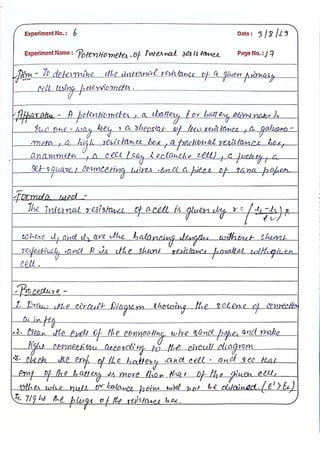 Experiment No. : 6 Date : 9/8/19
Experiment Name : Potentiometer of Internal resistance Page No. : 17
Aim - To determine the internal resistance of a given primary
cell using potentiometer.
Apparatus - A potentiometer, a battery (or battery eliminator),
two one-way key, a rheostat of low resistance, a galvano-
meter, a high resistance box, a fractional resistance box,
an ammeter, a cell (say Leclanche cell), a jockey, a
set-square, connecting wires and a piece of sand paper.
Formula used :-
The internal resistance of a cell is given by r = (l1-l2/l2) R
where l1 and l2 are the balancing lengths without shunt
respectively and R is the shunt resistance parallel with given
cell.
Procedure -
1. Draw the circuit Diagram showing the scheme of connection
as in fig
2. Clean the ends of the connecting wire sand paper and make
tight connections according to the circuit diagram
3. Check the emf of the battery and cell and see that
emf of the battery is more than that of the given cell,
other wise null or balance point will not be obtained (E'>E)
4. Tight the plugs of the resistance box.